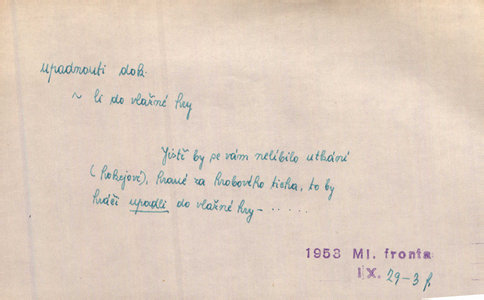 upadnouti dok.
~ li do vlažné hry
Jistě by se vám nelíbilo utkání
(hokejové), hrané za hrobového ticha, to by
hráči upadli do vlažné hry – . . . . .
1953 Ml. fronta
IX. 29-3